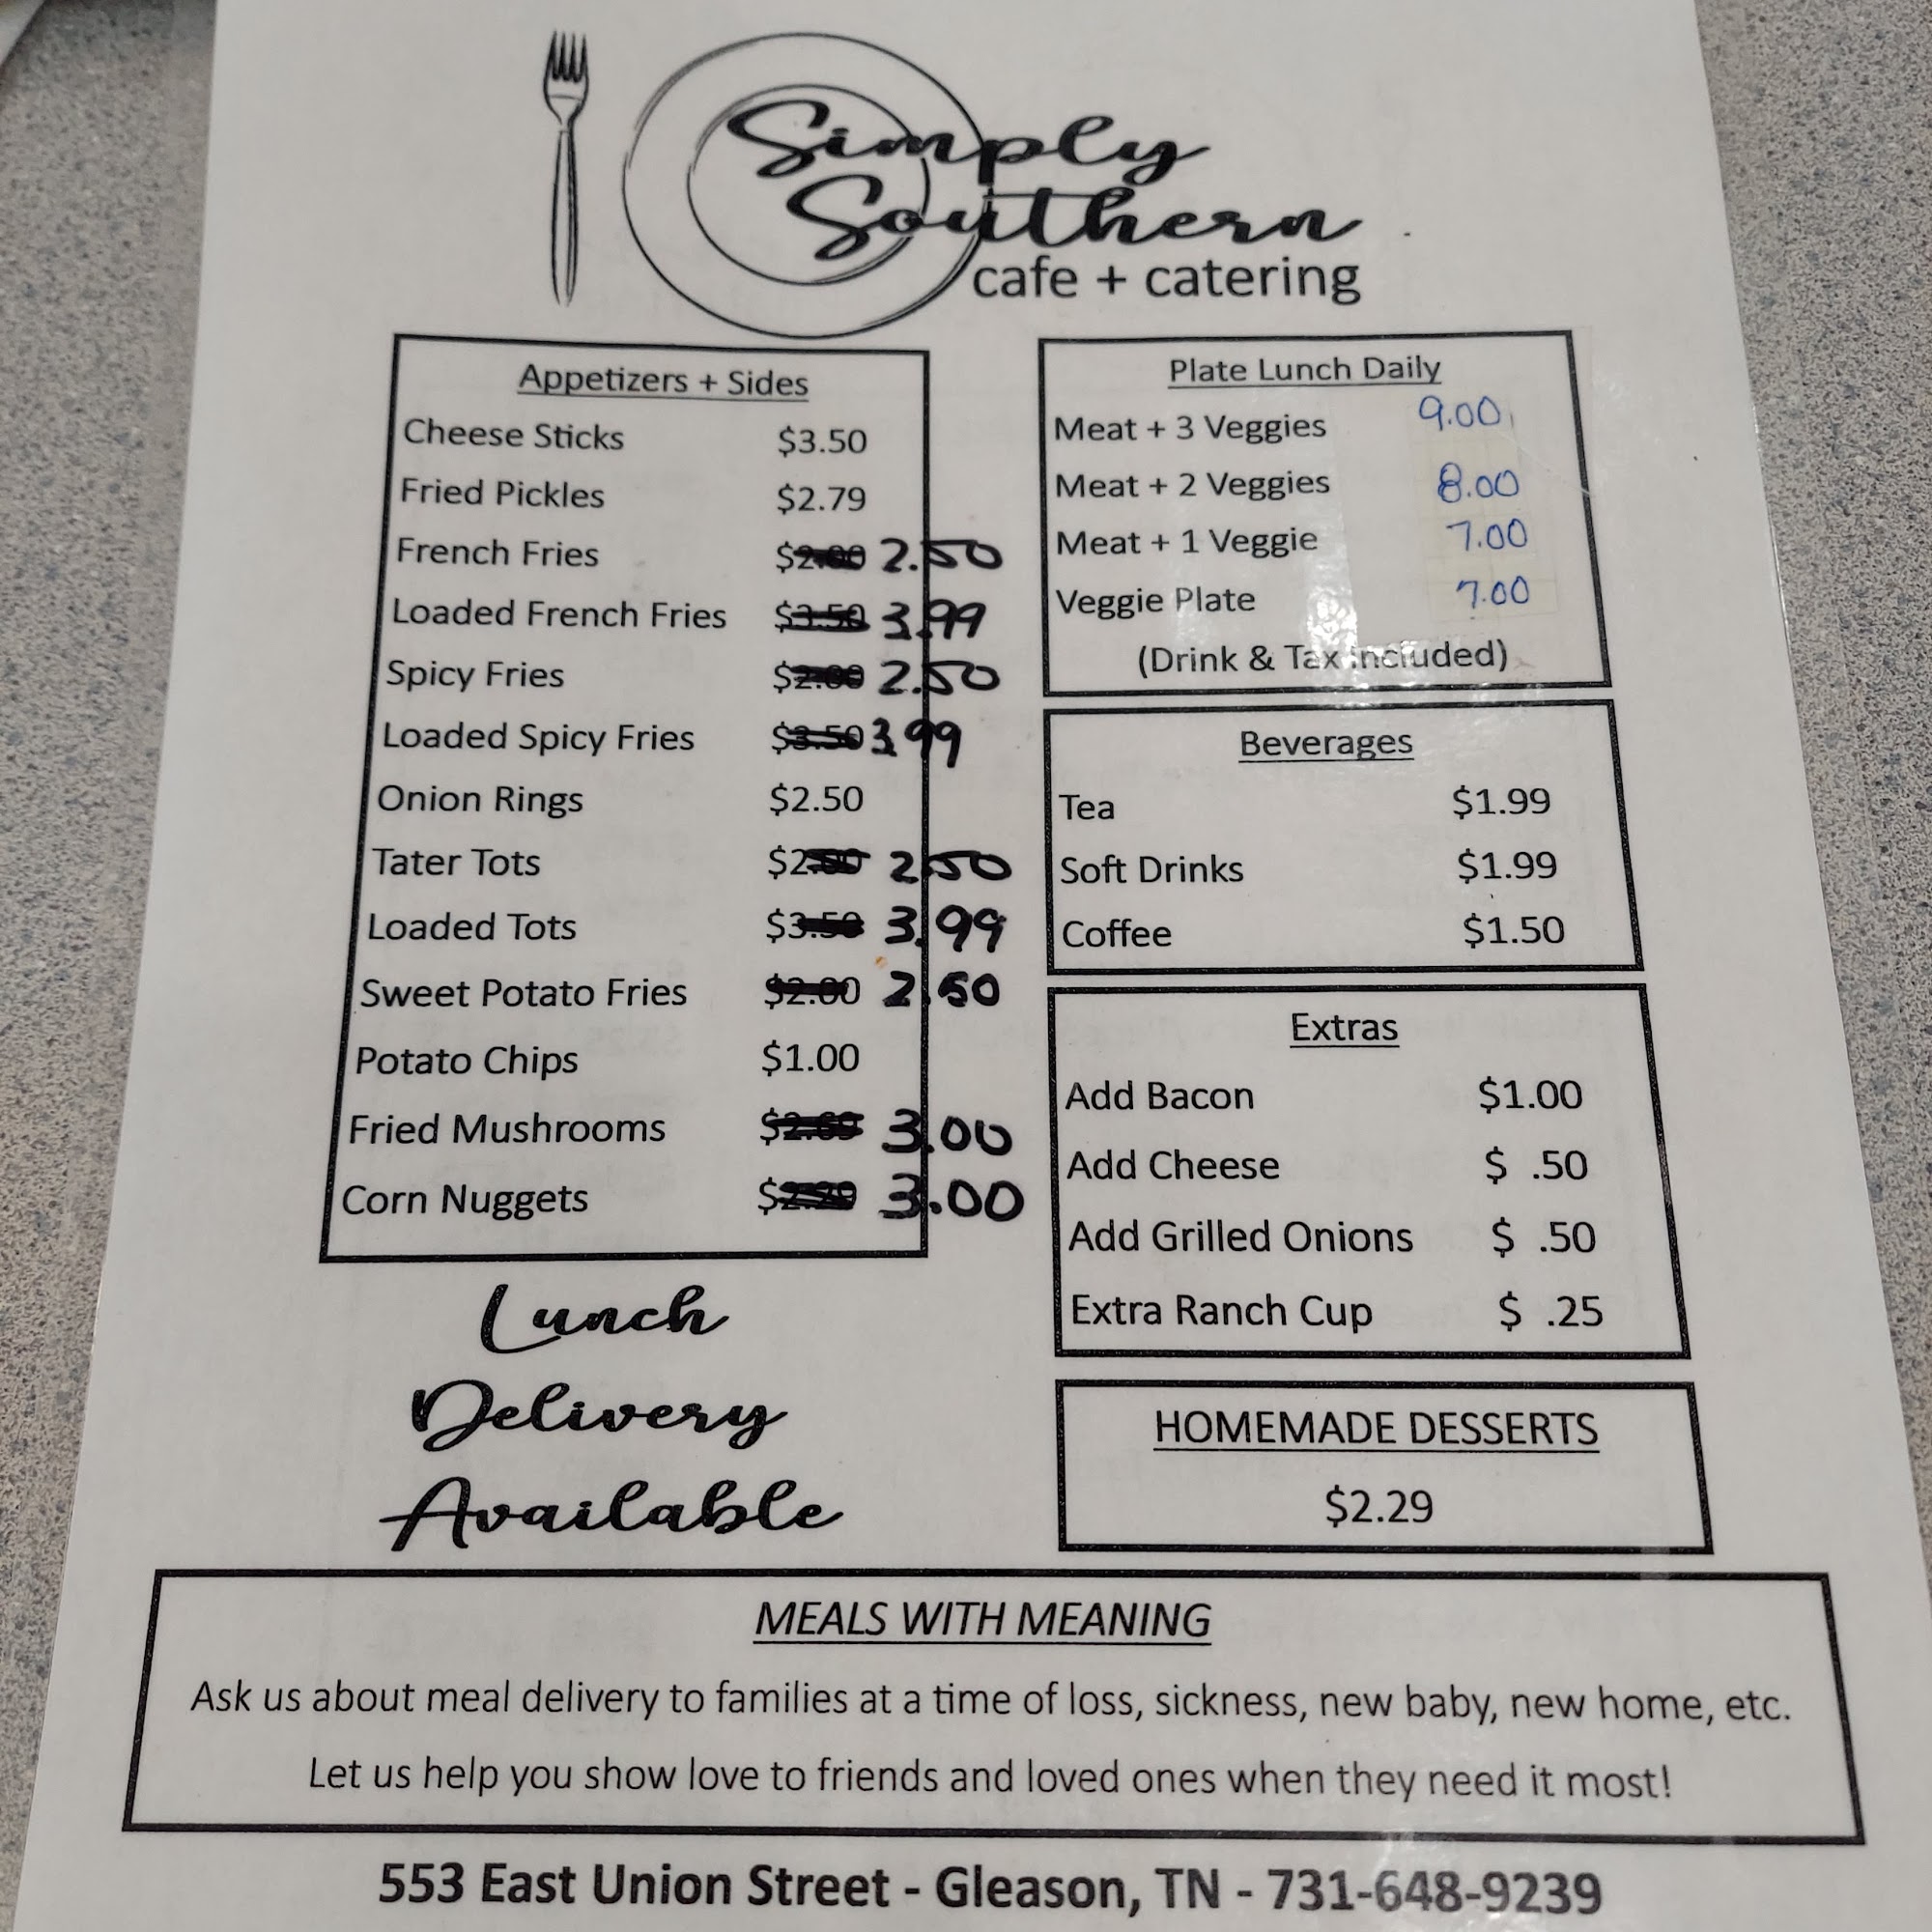 Simply
Southern
cafe + catering
Appetizers + Sides
Cheese Sticks $3.50
Fried Pickles $2.79
French Fries $2.00 2.50
Loaded French Fries $3.50 3.99
Spicy Fries $2.00 2.50
Loaded Spicy Fries $3.50 3.99
Onion Rings $2.50
Tater Tots $2.00 2.50
Loaded Tots $3.50 3.99
Sweet Potato Fries $2.00 2.50
Potato Chips $1.00
Fried Mushrooms 3.00
Corn Nuggets 3.00
Lunch
Delivery
Available
Plate Lunch Daily
Meat + 3 Veggies 9.00
Meat + 2 Veggies 8.00
Meat + 1 Veggie 7.00
Veggie Plate 7.00
(Drink & Tax included)
Beverages
Tea $1.99
Soft Drinks $1.99
Coffee $1.50
Extras
Add Bacon $1.00
Add Cheese $ .50
Add Grilled Onions $ .50
Extra Ranch Cup $ .25
HOMEMADE DESSERTS
$2.29
MEALS WITH MEANING
Ask us about meal delivery to families at a time of loss, sickness, new baby, new home, etc.
Let us help you show love to friends and loved ones when they need it most!
553 East Union Street - Gleason, TN - 731-648-9239